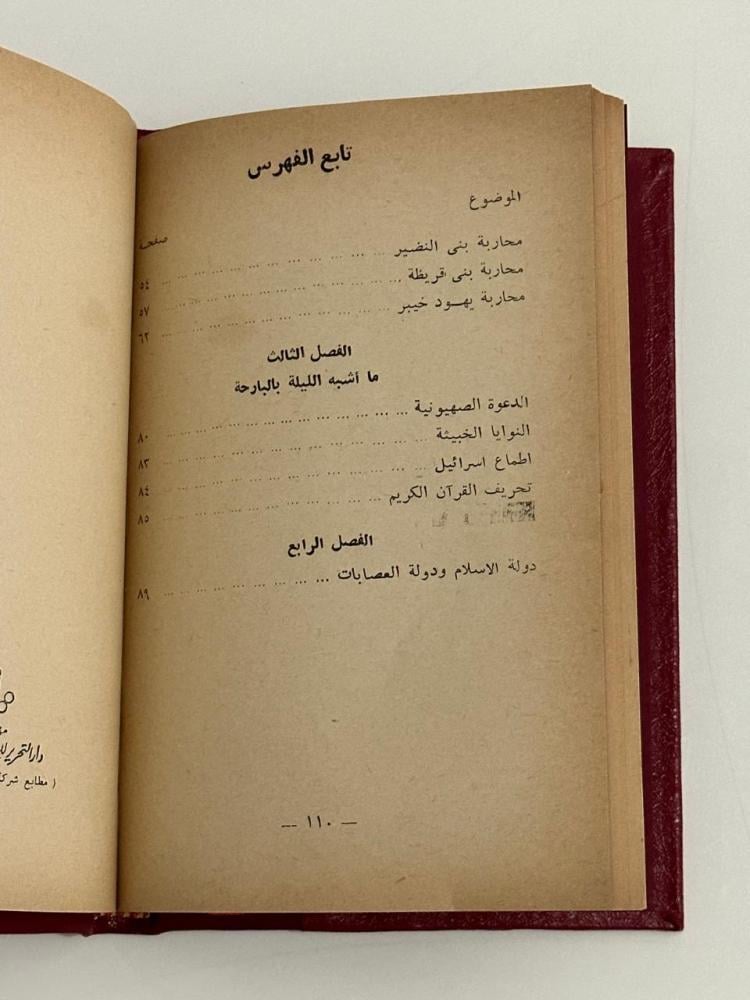 تابع الفهرس
الموضوع
صفحة
محاربة بنى النضير ... ... ... ... ... ... ... ... ... ... ... ... ٥٤
محاربة بنى قريظة ... ... ... ... ... ... ... ... ... ... ... ... ٥٧
محاربة يهود خيبر ... ... ... ... ... ... ... ... ... ... ... ... ٦٢
الفصل الثالث
ما أشبه الليلة بالبارحة
الدعوة الصهيونية ... ... ... ... ... ... ... ... ... ... ... ... ٨٠
النوايا الخبيثة ... ... ... ... ... ... ... ... ... ... ... ... ٨٣
اطماع اسرائيل ... ... ... ... ... ... ... ... ... ... ... ... ٨٤
تحريف القرآن الكريم ... ... ... ... ... ... ... ... ... ... ... ٨٥
الفصل الرابع
دولة الاسلام ودولة العصابات ... ... ... ... ... ... ... ... ٨٩
— ١١٠ —
دار التحرير
( مطابع